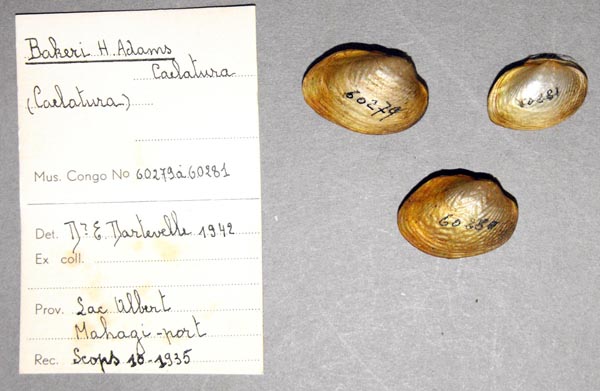 Bakeri H. Adams
Caelatura
(Caelatura)
Mus. Congo No 60279 à 60281
Det. Dr. E. Dartevelle 1942
Ex coll.
Prov. Lac Albert
Mahagi-port
Rec. Scops 10-1935
60279
60281
60280